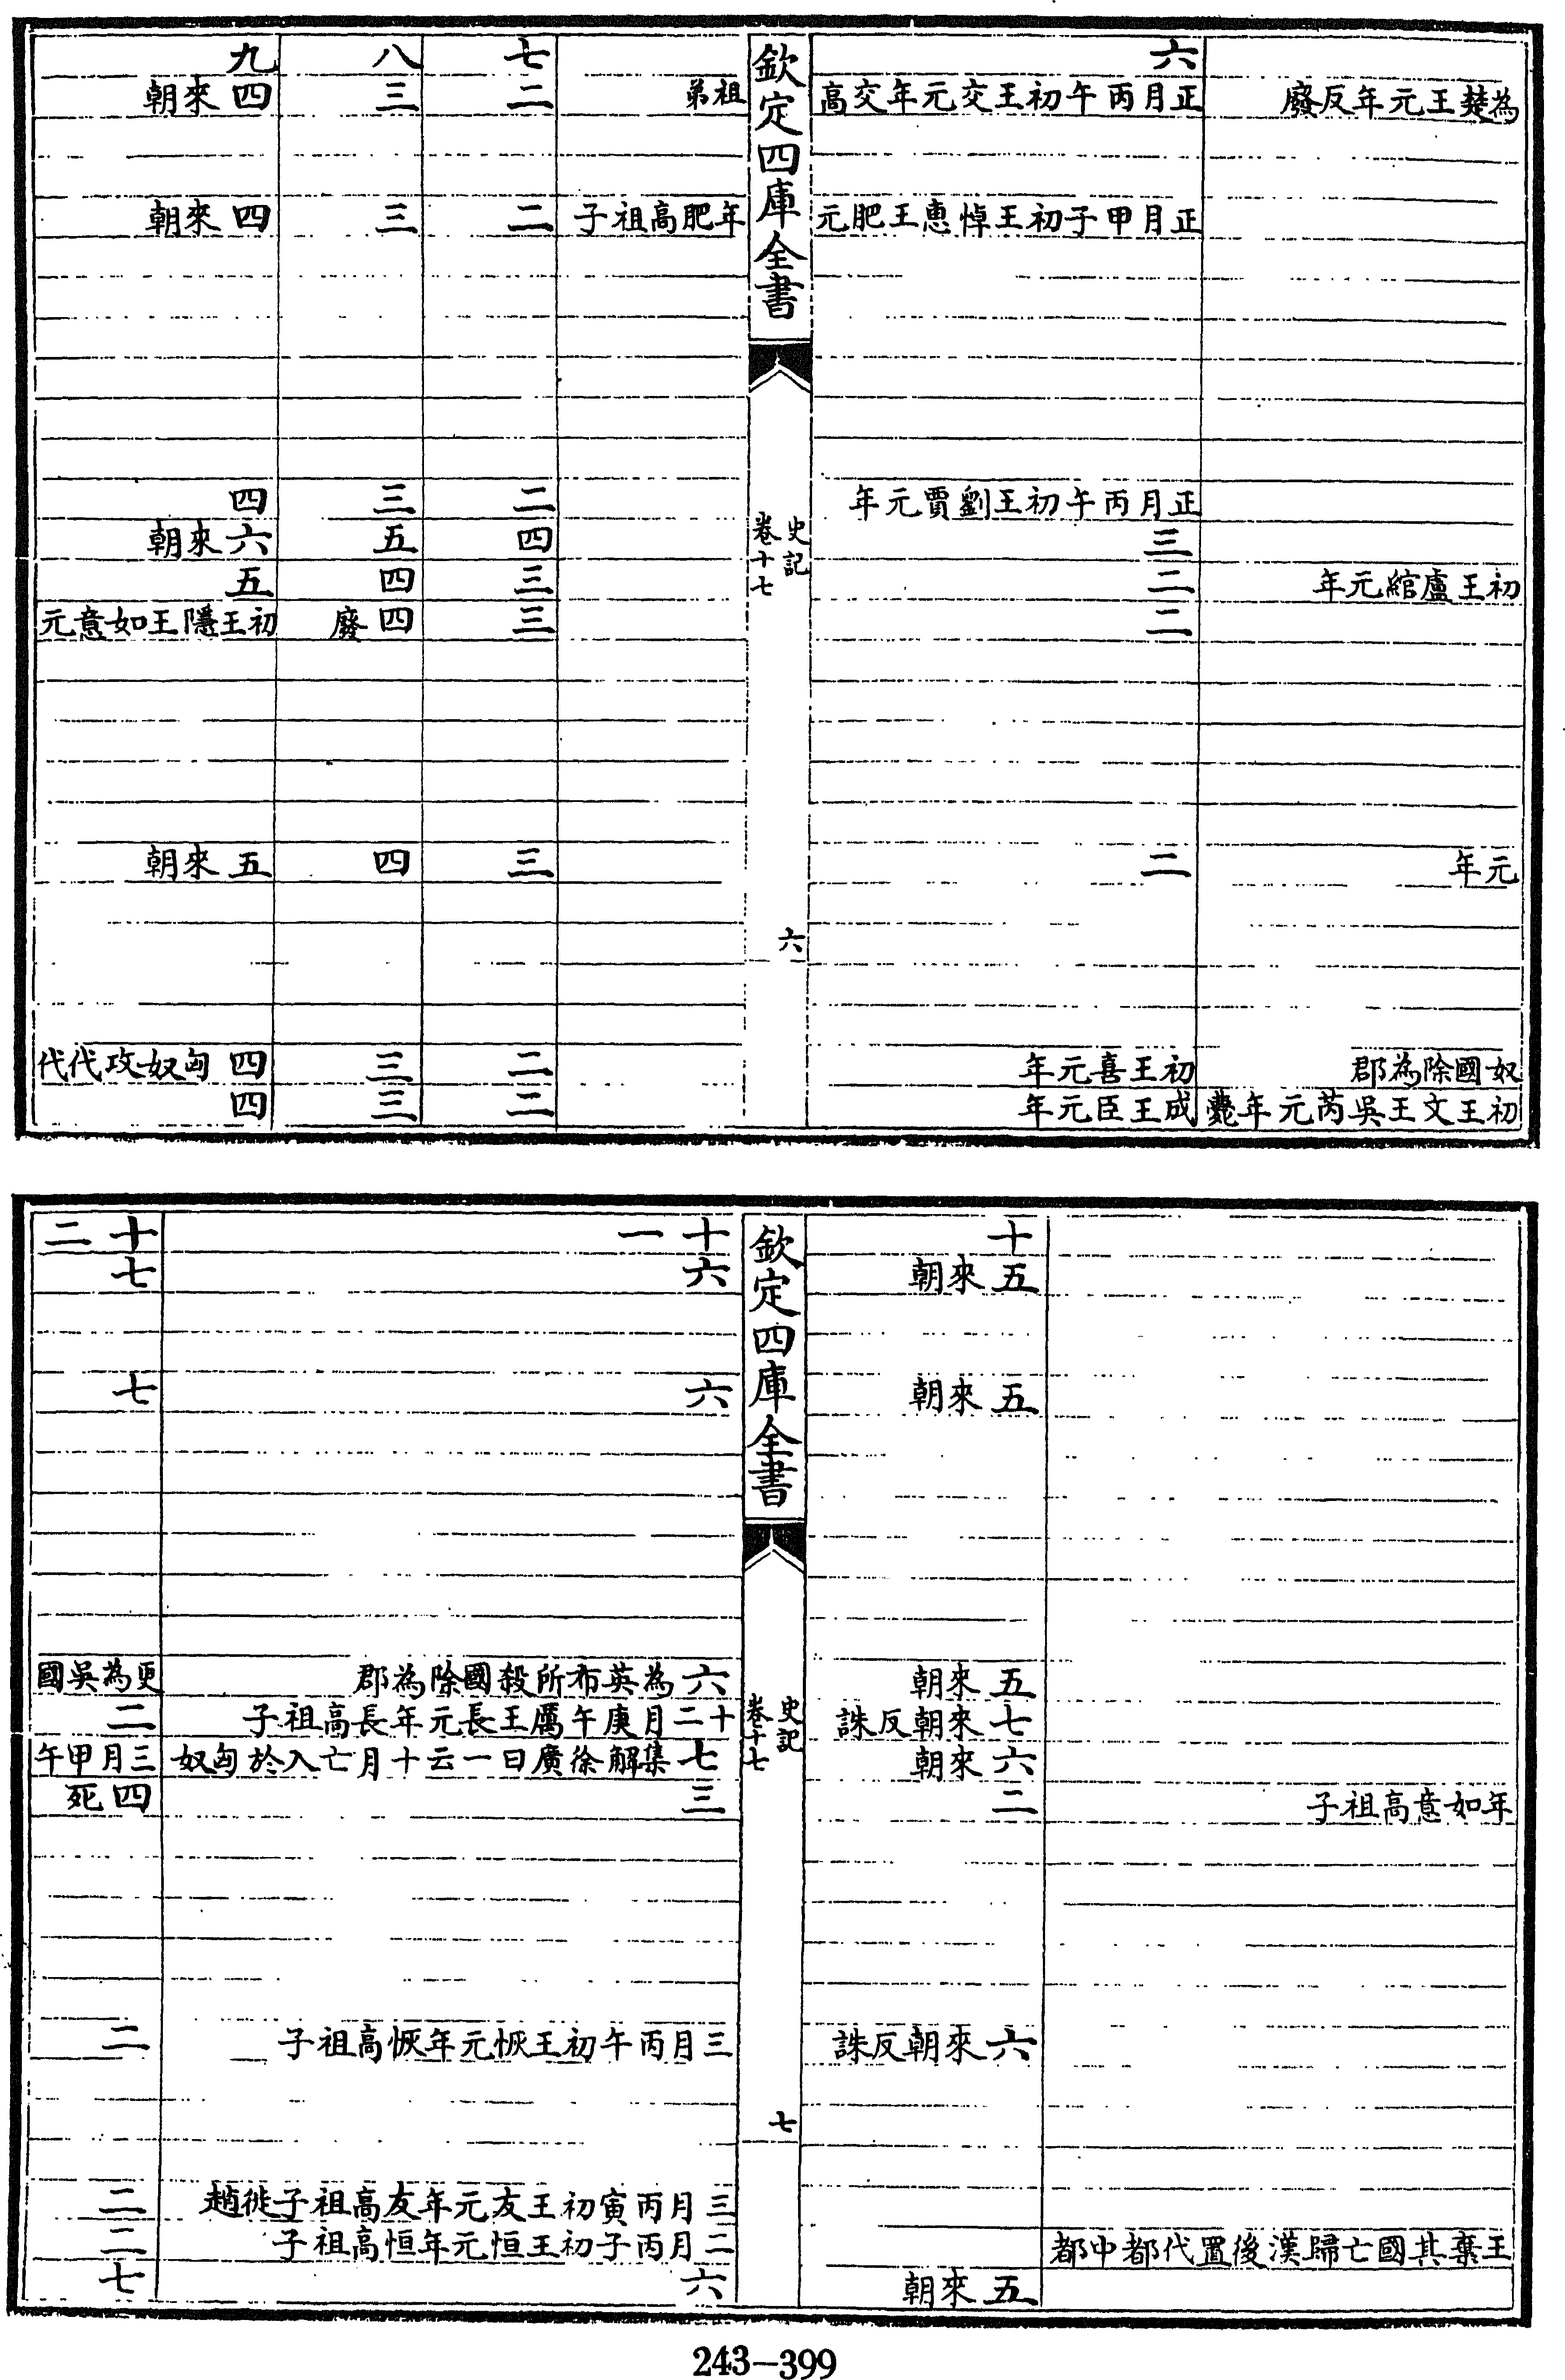 欽定四庫全書
史記
卷十七
六
六 七 八 九
為楚王元年反廢 正月丙午初王交元年交高 祖弟 二 三 四來朝
正月甲子初王悼惠王肥元 年肥高祖子 二 三 四來朝
正月丙午初王劉賈元年 二 三 四
三 四 五 六來朝
初王盧綰元年 二 三 四 五
二 三 四廢 初王隱王如意元
元年 二 三 四 五來朝
奴國除為郡 初王喜元年 二 三 四匈奴攻代代
初王文王吳芮元年薨 成王臣元年 二 三 四
欽定四庫全書
史記
卷十七
七
十 十一 十二
五來朝 六 七
五來朝 六 七
五來朝 六為英布所殺國除為郡 更為吳國
七來朝反誅 十二月庚午厲王長元年長高祖子 二
六來朝 七集解徐廣曰一云十月亡入於匈奴 三月甲午
年如意高祖子 二 三 四死
六來朝反誅 三月丙午初王恢元年恢高祖子 二
三月丙寅初王友元年友高祖子徙趙 二
王棄其國亡歸漢後置代都中都 二月丙子初王恒元年恒高祖子 二
五來朝 六 七
243-399